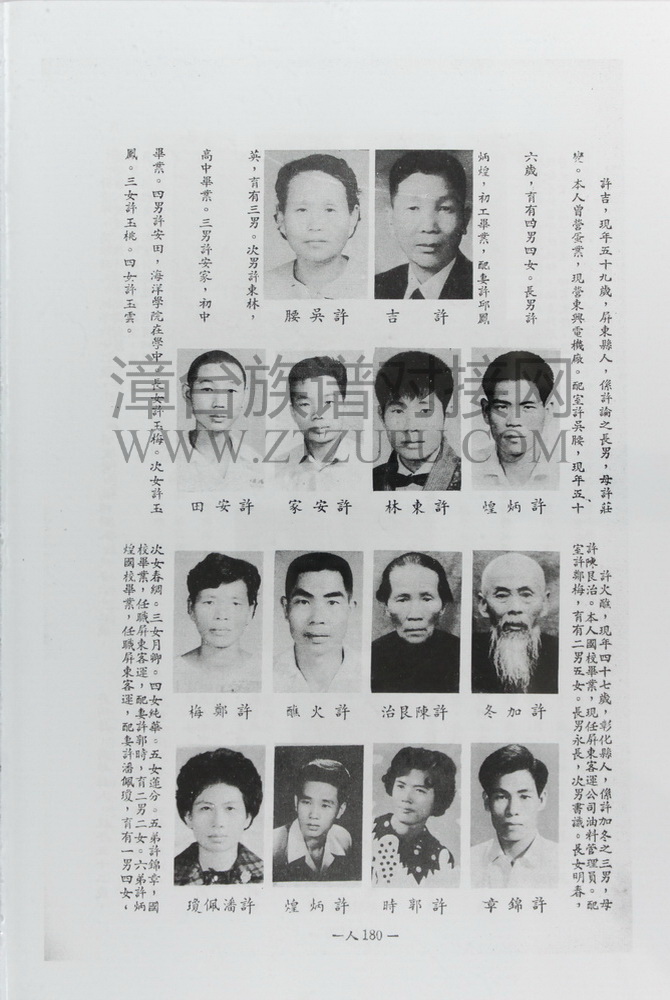 許吉，現年五十九歲，屏東縣人，係許論之長男，母許莊
變。本人曾營蛋業，現營東興電機廠。配室許吳腰，現年五十
六歲，育有四男四女。長男許
炳煌，初工畢業，配妻許邱鳳
英，育有三男。次男許東林，
高中畢業。三男許安家，初中
畢業。四男許安田，海洋學院在學中。長女許玉梅。次女許玉
鳳。三女許玉桃。四女許玉雲。
許吉
許吳腰
許炳煌
許東林
許安家
許安田
許火醮，現年四十七歲，彰化縣人，係許加冬之三男，母
許陳艮治。本人國校畢業，現任屏東客運公司油料管理員。配
室許鄭梅，育有二男五女。長男永長，次男書識。長女明春，
次女春綢。三女月卿。四女純華。五女運分。五弟許錦章，國
校畢業，任職屏東客運，配妻許郭時，育二男二女。六弟許炳
煌國校畢業，任職屏東客運，配妻許潘佩瓊，育有一男四女，
許加冬
許陳艮治
許火醮
許鄭梅
許錦章
許郭時
許炳煌
許潘佩瓊
—人180—
漳台族谱对接网
WWW.ZTZUPU.COM